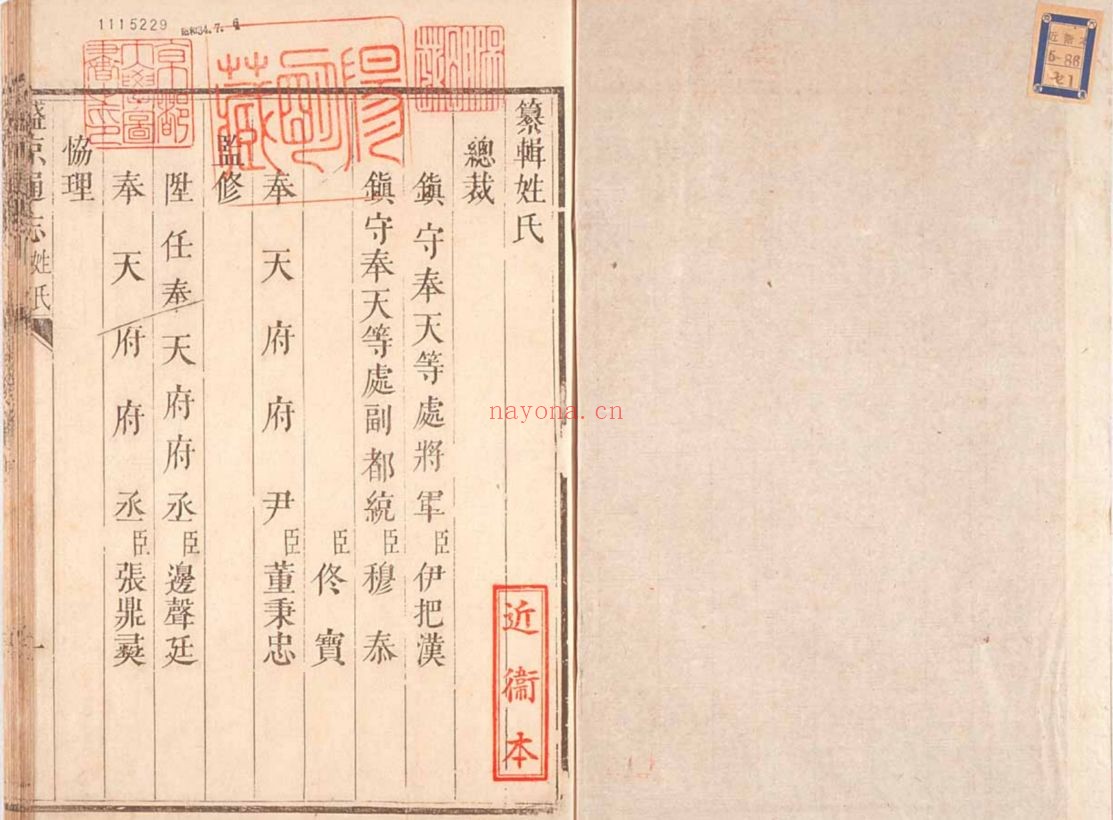 1115229 昭和34.7.6
纂輯姓氏
總裁
鎮守奉天等處將軍臣伊把漢
鎮守奉天等處副都統臣穆泰
臣佟寶
奉天府府尹臣董秉忠
監修
陞任奉天府府丞臣邊聲廷
奉天府府丞臣張鼎彛
協理
盛京通志 姓氏
一
陽明藏
京都帝國大學圖書之印
近衞本
近衛
5-86
nayona.cn